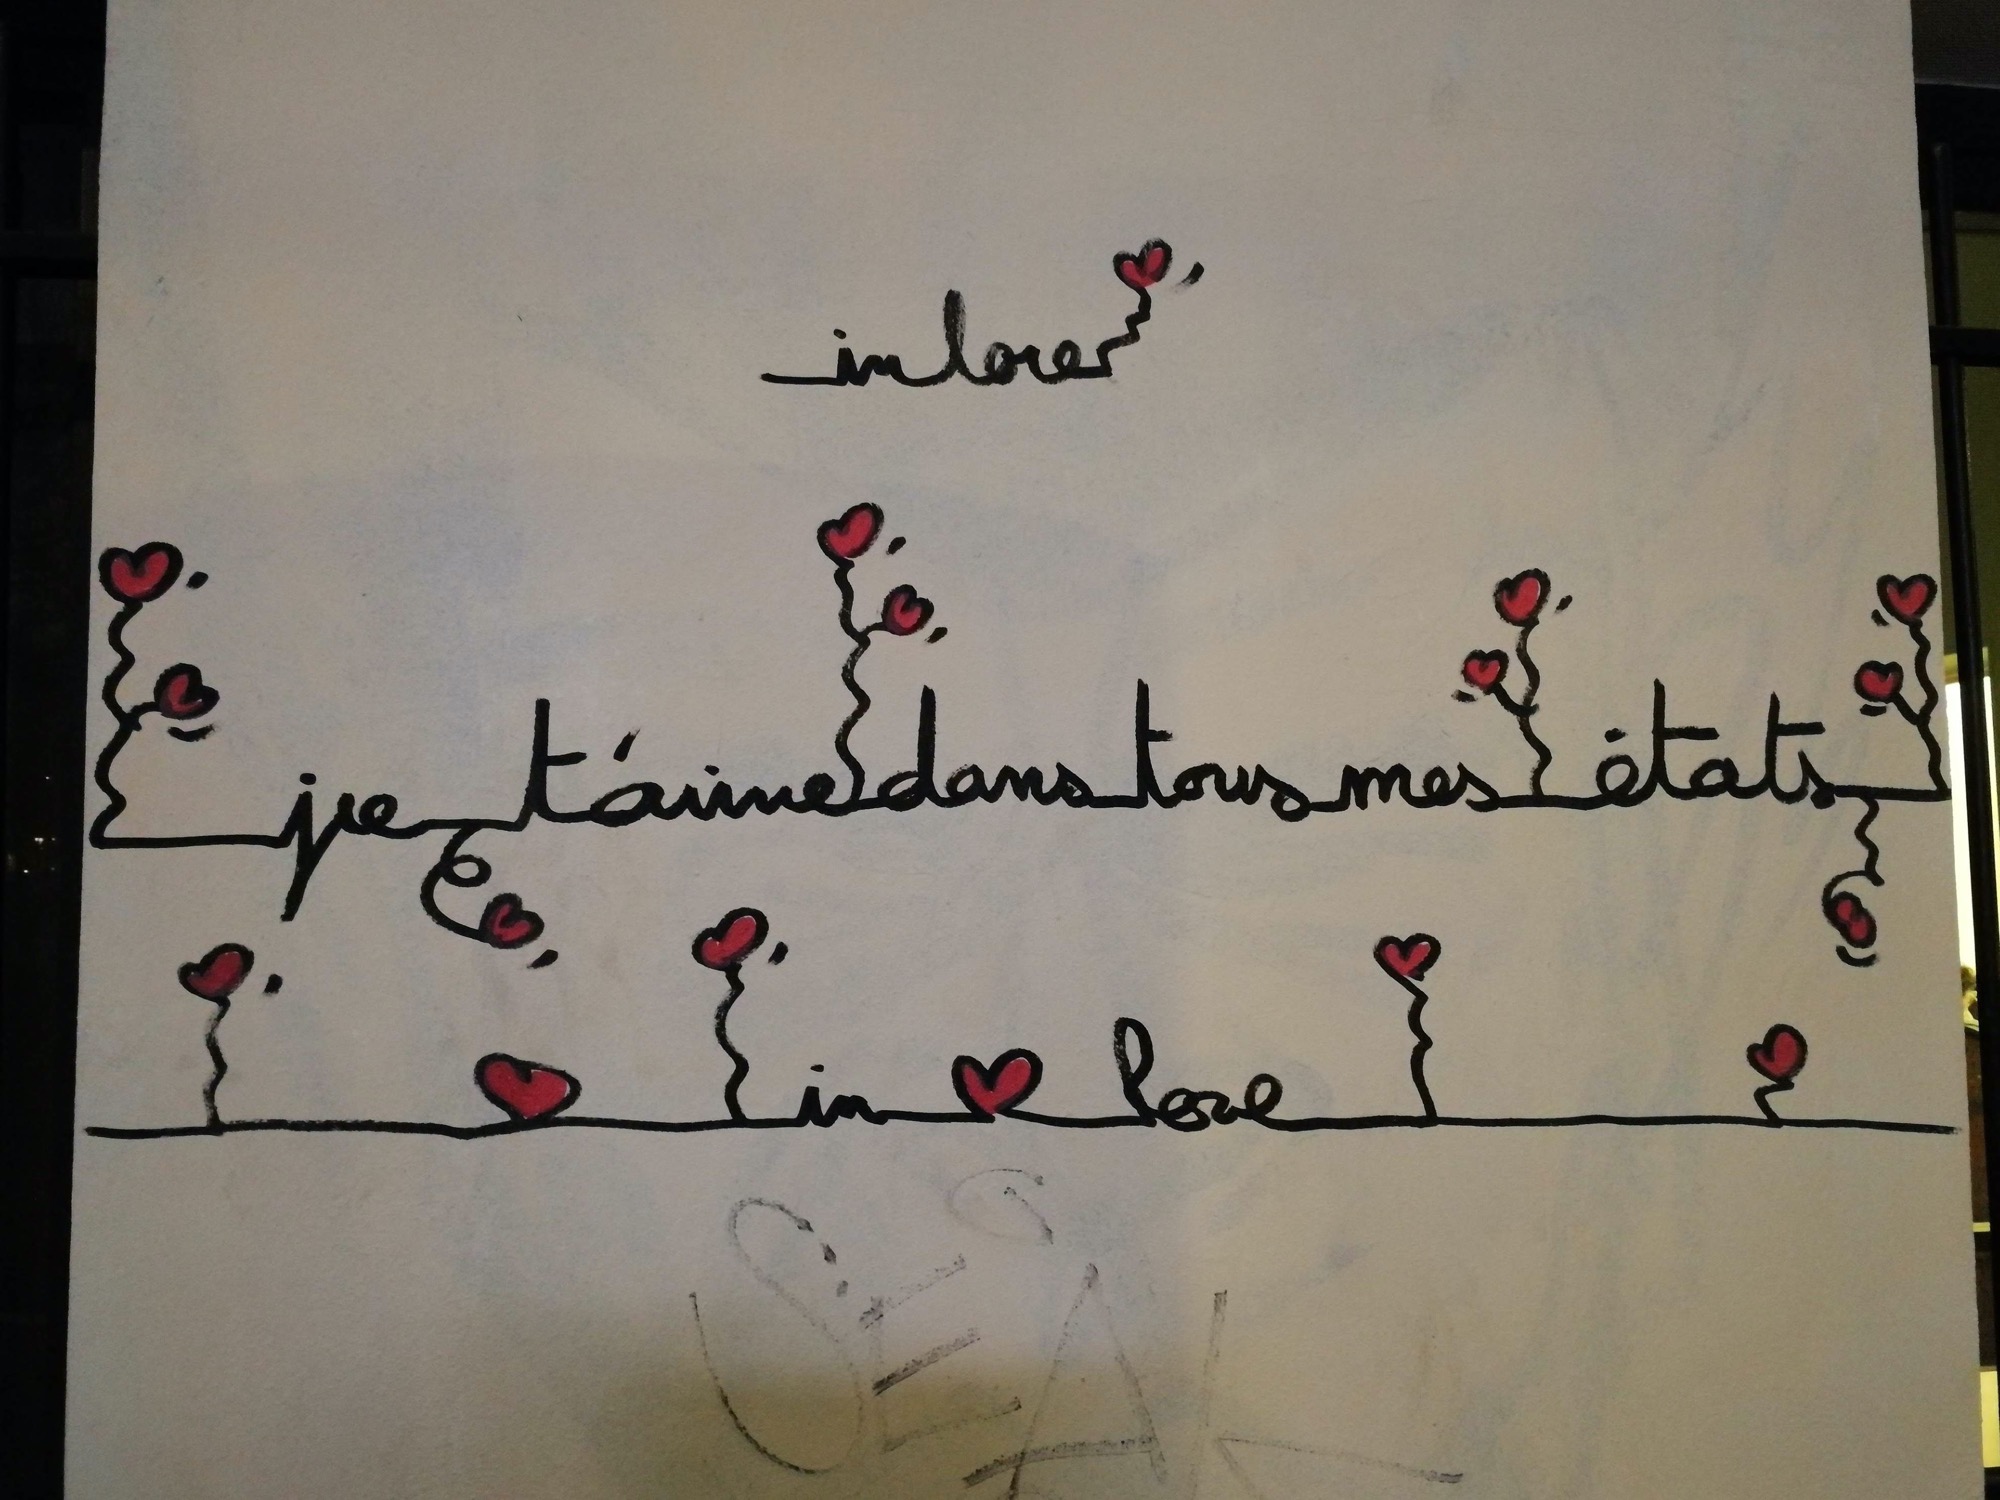 in love
je t'aime dans tous mes états
in love